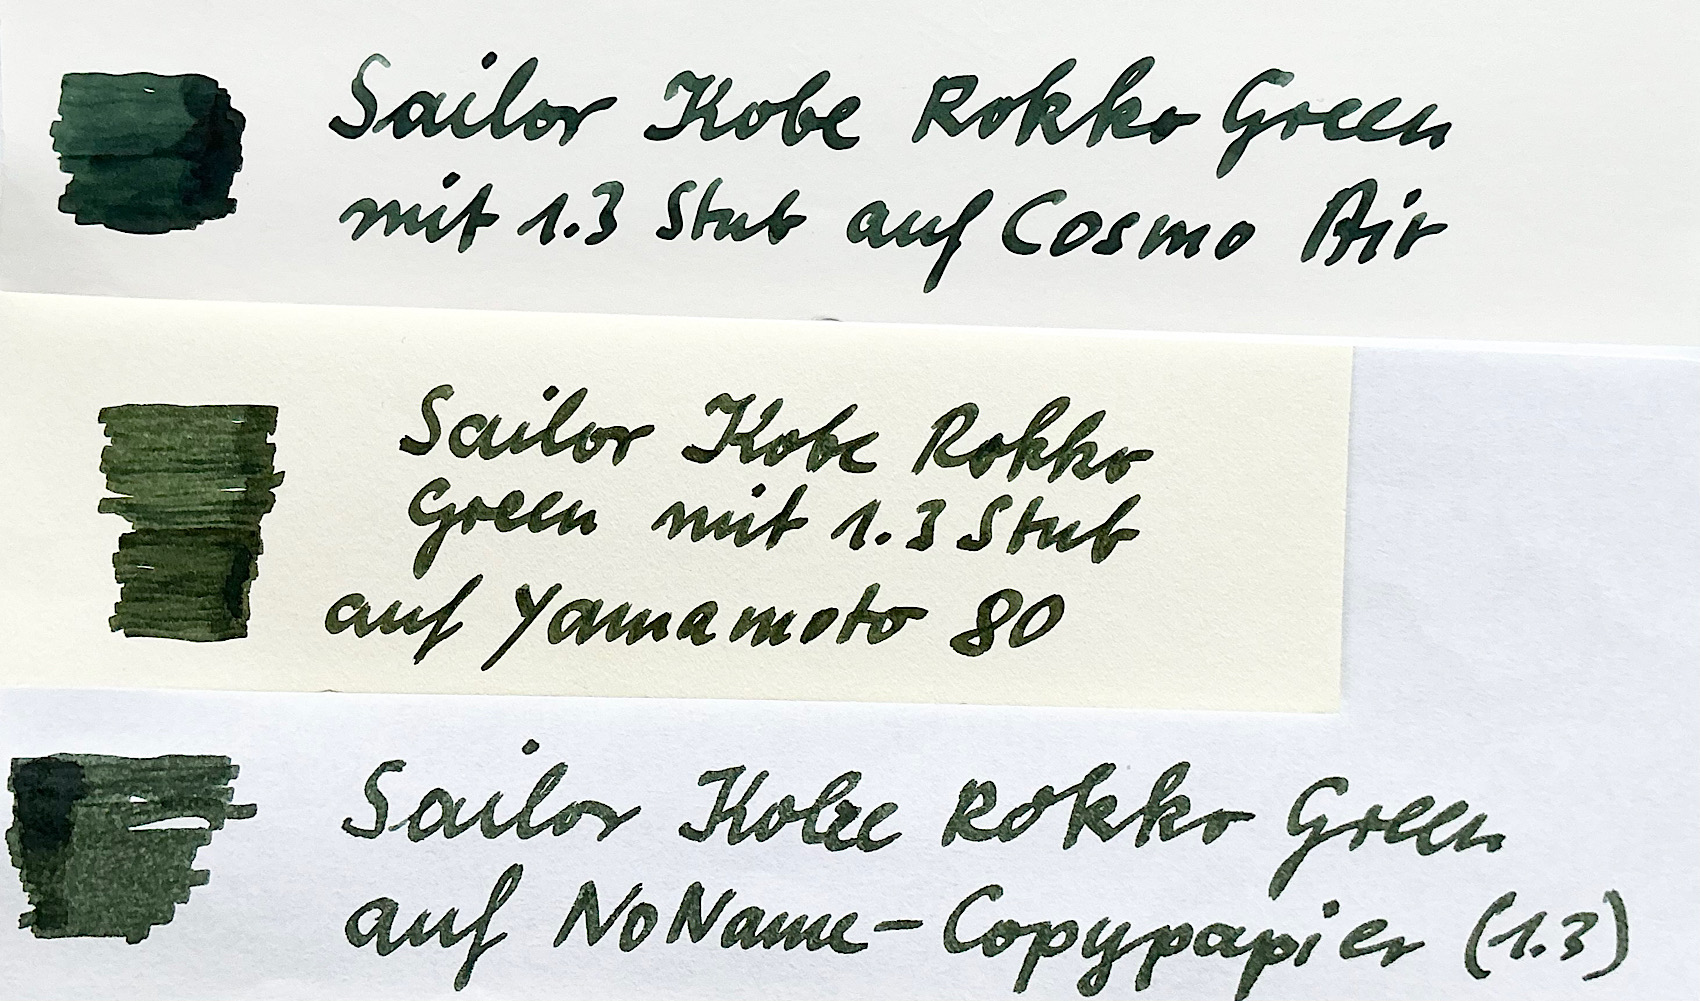 Sailor Kobe Rokko Green
mit 1.3 Stub auf Cosmo Air
Sailor Kobe Rokko
Green mit 1.3 Stub
auf Yamamoto 80
Sailor Kobe Rokko Green
auf NoName-Copypapier (1.3)